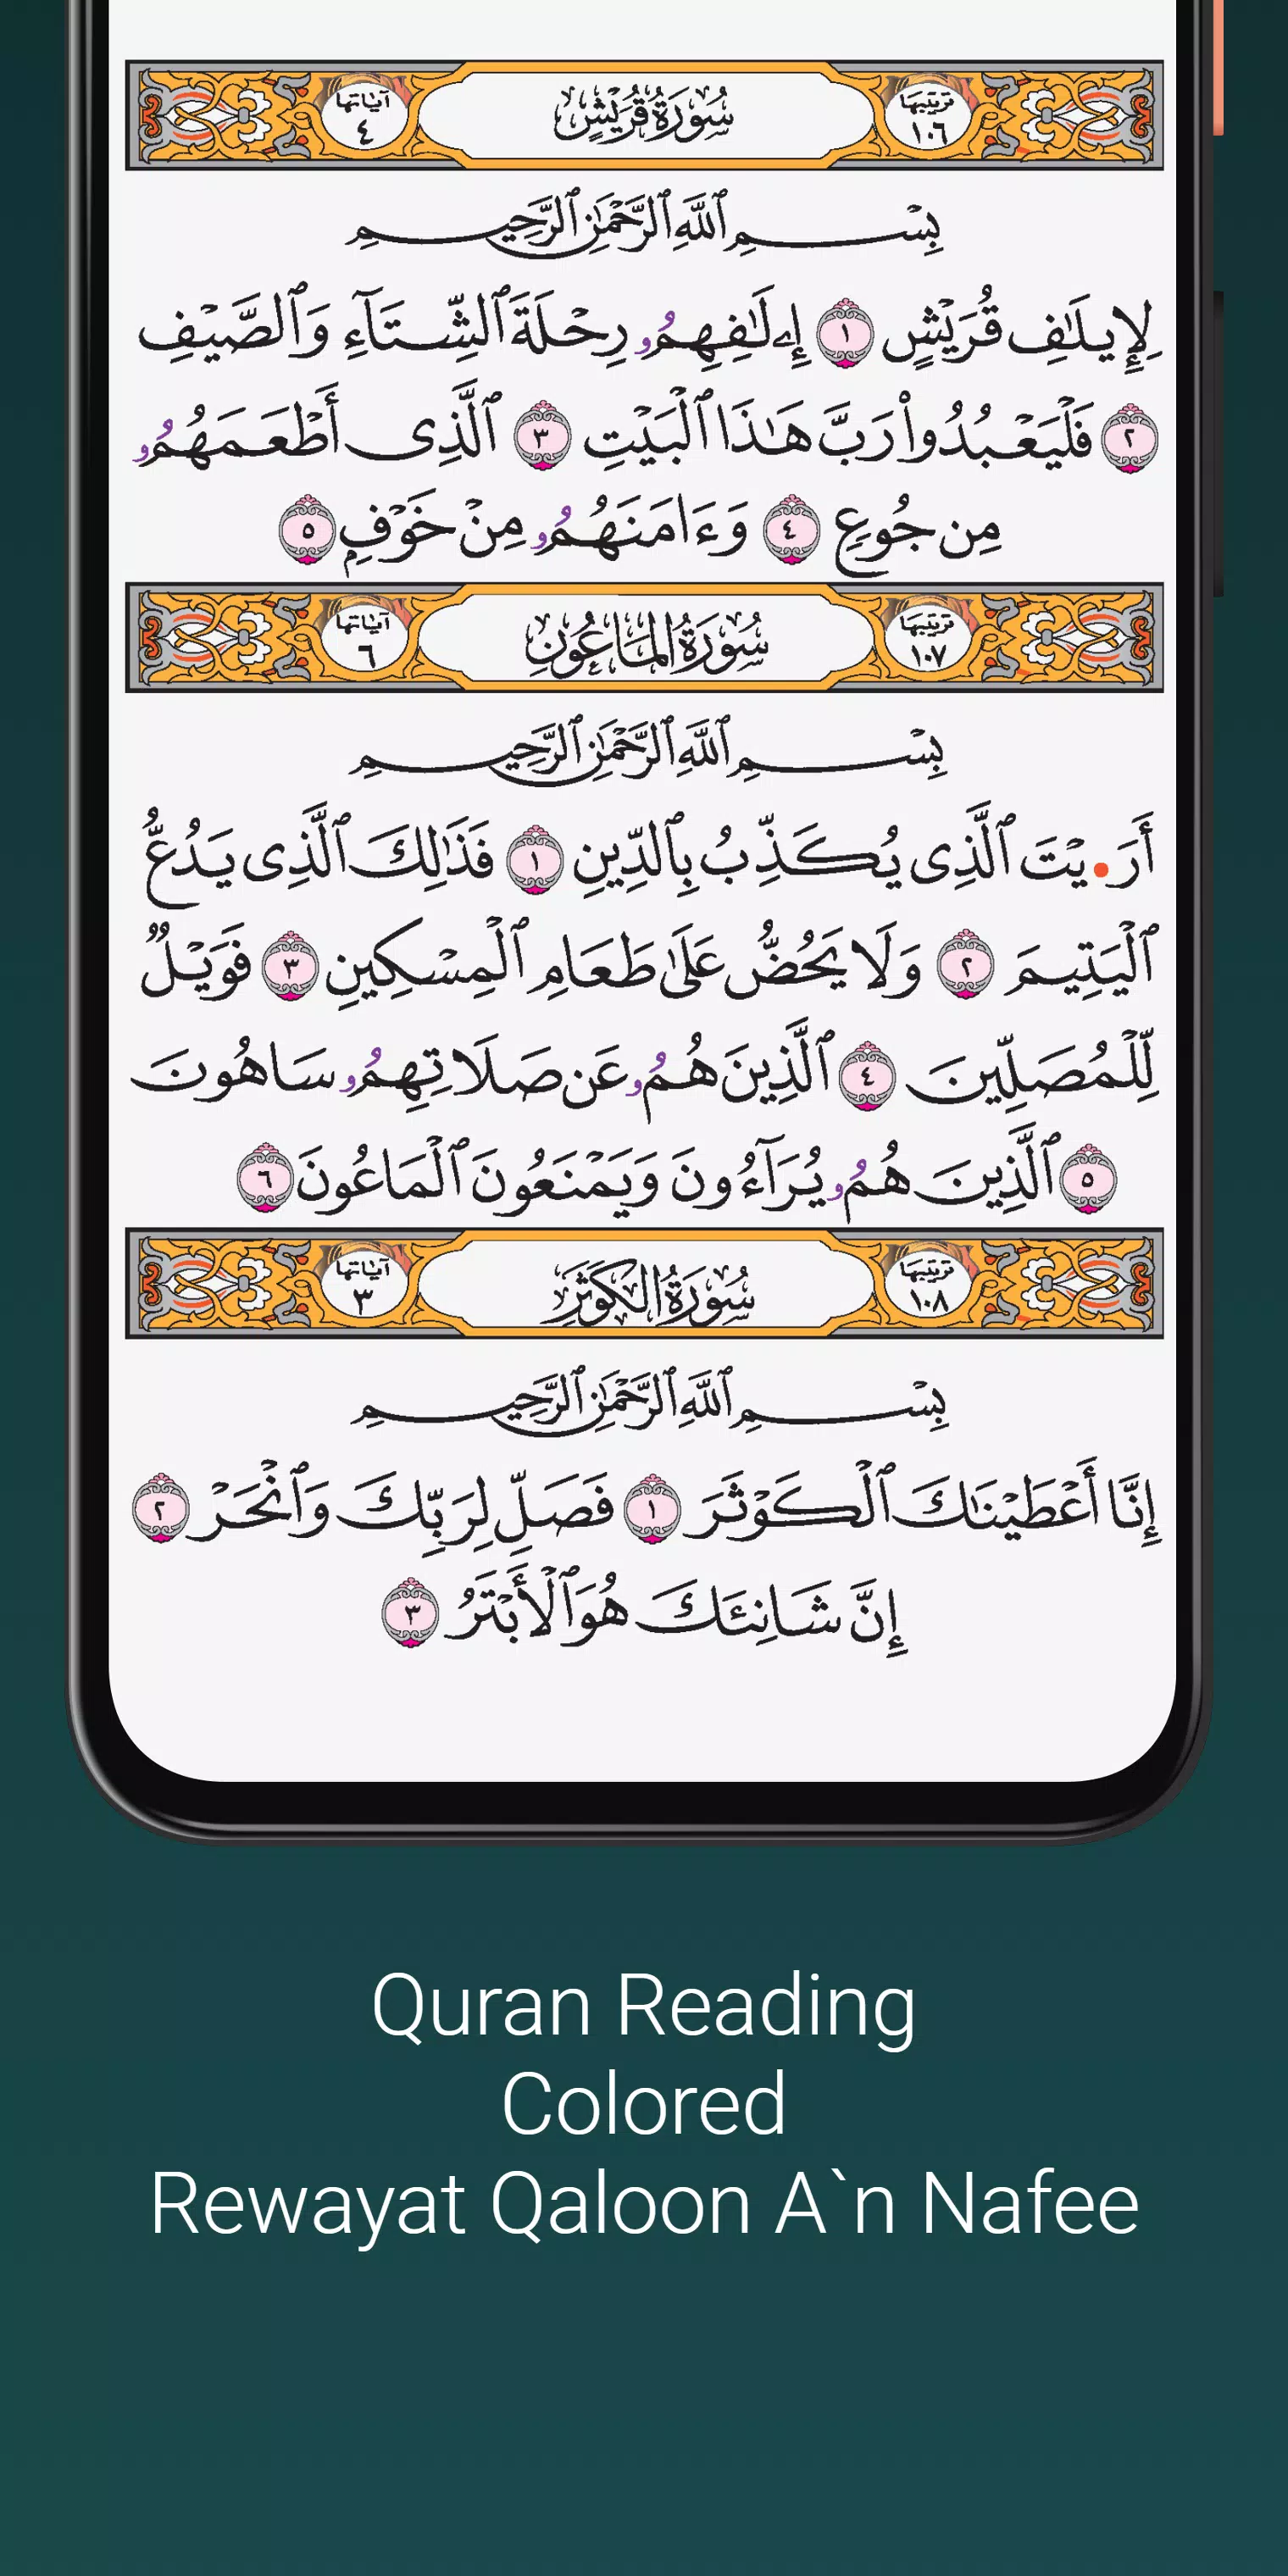 ترتيبها ١٠٦ سُورَةُ قُرَيْشٍ آياتها ٤
بِسْمِ ٱللَّهِ ٱلرَّحْمَٰنِ ٱلرَّحِيمِ
لِإِيلَٰفِ قُرَيْشٍ ١ إِۦلَٰفِهِمُۥ رِحْلَةَ ٱلشِّتَآءِ وَٱلصَّيْفِ
٢ فَلْيَعْبُدُوا۟ رَبَّ هَٰذَا ٱلْبَيْتِ ٣ ٱلَّذِى أَطْعَمَهُمُۥ
مِن جُوعٍ ٤ وَءَامَنَهُمُۥ مِنْ خَوْفٍ ٥
ترتيبها ١٠٧ سُورَةُ الْمَاعُونِ آياتها ٦
بِسْمِ ٱللَّهِ ٱلرَّحْمَٰنِ ٱلرَّحِيمِ
أَرَ•يْتَ ٱلَّذِى يُكَذِّبُ بِٱلدِّينِ ١ فَذَٰلِكَ ٱلَّذِى يَدُعُّ
ٱلْيَتِيمَ ٢ وَلَا يَحُضُّ عَلَىٰ طَعَامِ ٱلْمِسْكِينِ ٣ فَوَيْلٌ
لِّلْمُصَلِّينَ ٤ ٱلَّذِينَ هُمُۥ عَن صَلَاتِهِمُۥ سَاهُونَ
٥ ٱلَّذِينَ هُمُۥ يُرَآءُونَ وَيَمْنَعُونَ ٱلْمَاعُونَ ٦
ترتيبها ١٠٨ سُورَةُ الْكَوْثَرِ آياتها ٣
بِسْمِ ٱللَّهِ ٱلرَّحْمَٰنِ ٱلرَّحِيمِ
إِنَّا أَعْطَيْنَٰكَ ٱلْكَوْثَرَ ١ فَصَلِّ لِرَبِّكَ وَٱنْحَرْ ٢
إِنَّ شَانِئَكَ هُوَ ٱلْأَبْتَرُ ٣
Quran Reading
Colored
Rewayat Qaloon A`n Nafee